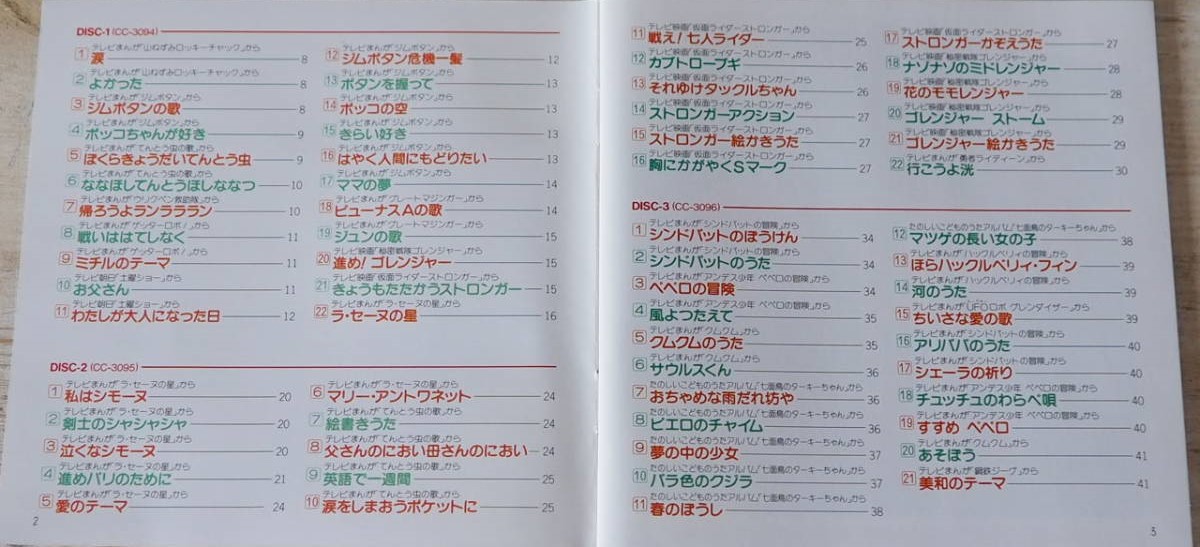 DISC-1 (CC-3094)
テレビまんが「山ねずみロッキーチャック」から
1 涙 8
テレビまんが「山ねずみロッキーチャック」から
2 よかった 8
テレビまんが「ジムボタン」から
3 ジムボタンの歌 8
テレビまんが「ジムボタン」から
4 ポッコちゃんが好き 9
テレビまんが「てんとう虫の歌」から
5 ぼくらきょうだいてんとう虫 9
テレビまんが「てんとう虫の歌」から
6 ななほしてんとうほしななつ 10
テレビまんが「ウリクペン救助隊」から
7 帰ろうよランララララン 10
テレビまんが「ゲッターロボ」から
8 戦いははてしなく 11
テレビまんが「ゲッターロボ」から
9 ミチルのテーマ 11
テレビ朝日「土曜ショー」から
10 お父さん 11
テレビ朝日「土曜ショー」から
11 わたしが大人になった日 12
テレビまんが「ジムボタン」から
12 ジムボタン危機一髪 12
テレビまんが「ジムボタン」から
13 ボタンを握って 13
テレビまんが「ジムボタン」から
14 ポッコの空 13
テレビまんが「ジムボタン」から
15 きらい好き 13
テレビまんが「ジムボタン」から
16 はやく人間にもどりたい 13
テレビまんが「ジムボタン」から
17 ママの夢 14
テレビまんが「グレートマジンガー」から
18 ビューナスAの歌 14
テレビまんが「グレートマジンガー」から
19 ジュンの歌 15
テレビ映画「秘密戦隊ゴレンジャー」から
20 進め!ゴレンジャー 15
テレビ映画「仮面ライダーストロンガー」から
21 きょうもたたかうストロンガー 15
テレビまんが「ラ・セーヌの星」から
22 ラ・セーヌの星 16
DISC-2 (CC-3095)
テレビまんが「ラ・セーヌの星」から
1 私はシモーヌ 20
テレビまんが「ラ・セーヌの星」から
2 剣士のシャシャシャ 20
テレビまんが「ラ・セーヌの星」から
3 泣くなシモーヌ 20
テレビまんが「ラ・セーヌの星」から
4 進めパリのために 21
テレビまんが「ラ・セーヌの星」から
5 愛のテーマ 24
テレビまんが「ラ・セーヌの星」から
6 マリー・アントワネット 24
テレビまんが「てんとう虫の歌」から
7 絵書きうた 24
テレビまんが「てんとう虫の歌」から
8 父さんのにおい母さんのにおい 24
テレビまんが「てんとう虫の歌」から
9 英語で一週間 25
テレビまんが「てんとう虫の歌」から
10 涙をしまおうポケットに 25
2
テレビ映画「仮面ライダーストロンガー」から
11 戦え!七人ライダー 25
テレビ映画「仮面ライダーストロンガー」から
12 カブトローブギ 26
テレビ映画「仮面ライダーストロンガー」から
13 それゆけタックルちゃん 26
テレビ映画「仮面ライダーストロンガー」から
14 ストロンガーアクション 27
テレビ映画「仮面ライダーストロンガー」から
15 ストロンガー絵かきうた 27
テレビ映画「仮面ライダーストロンガー」から
16 胸にかがやくSマーク 27
テレビ映画「仮面ライダーストロンガー」から
17 ストロンガーかぞえうた 27
テレビ映画「秘密戦隊ゴレンジャー」から
18 ナゾナゾのミドレンジャー 28
テレビ映画「秘密戦隊ゴレンジャー」から
19 花のモモレンジャー 28
テレビ映画「秘密戦隊ゴレンジャー」から
20 ゴレンジャー ストーム 29
テレビ映画「秘密戦隊ゴレンジャー」から
21 ゴレンジャー絵かきうた 29
テレビまんが「勇者ライディーン」から
22 行こうよ洸 30
DISC-3 (CC-3096)
テレビまんが「シンドバットの冒険」から
1 シンドバットのぼうけん 34
テレビまんが「シンドバットの冒険」から
2 シンドバットのうた 34
テレビまんが「アンデス少年 ペペロの冒険」から
3 ペペロの冒険 34
テレビまんが「アンデス少年 ペペロの冒険」から
4 風よつたえて 35
テレビまんが「クムクム」から
5 クムクムのうた 35
テレビまんが「クムクム」から
6 サウルスくん 36
たのしいこどものうたアルバム「七面鳥のターキーちゃん」から
7 おちゃめな雨だれ坊や 36
たのしいこどものうたアルバム「七面鳥のターキーちゃん」から
8 ピエロのチャイム 36
たのしいこどものうたアルバム「七面鳥のターキーちゃん」から
9 夢の中の少女 37
たのしいこどものうたアルバム「七面鳥のターキーちゃん」から
10 バラ色のクジラ 37
たのしいこどものうたアルバム「七面鳥のターキーちゃん」から
11 春のぼうし 38
たのしいこどものうたアルバム「七面鳥のターキーちゃん」から
12 マツゲの長い女の子 38
テレビまんが「ハックルベリィの冒険」から
13 ほらハックルベリィ・フィン 39
テレビまんが「ハックルベリィの冒険」から
14 河のうた 39
テレビまんが「UFOロボ グレンダイザー」から
15 ちいさな愛の歌 39
テレビまんが「シンドバットの冒険」から
16 アリババのうた 40
テレビまんが「シンドバットの冒険」から
17 シェーラの祈り 40
テレビまんが「アンデス少年 ペペロの冒険」から
18 チュッチュのわらべ唄 40
テレビまんが「アンデス少年 ペペロの冒険」から
19 すすめ ペペロ 40
テレビまんが「クムクム」から
20 あそぼう 41
テレビまんが「鋼鉄ジーグ」から
21 美和のテーマ 41
3